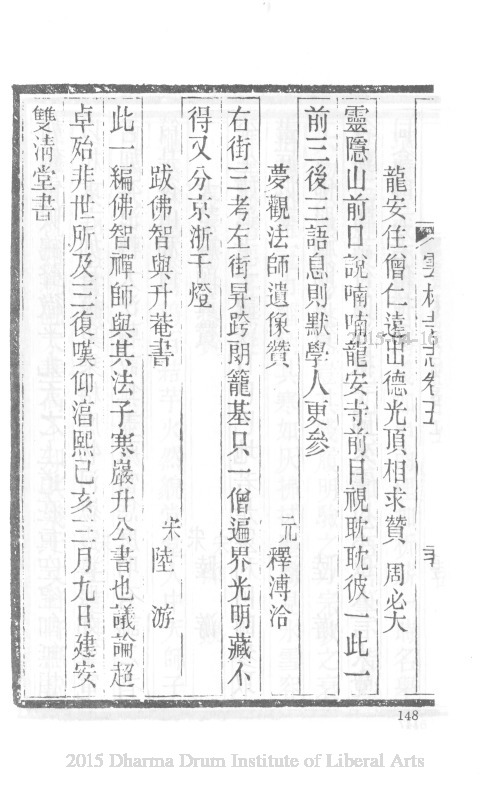 雲林寺志卷五
龍安住僧仁遠出德光頂相求贊 周必大
靈隱山前口說喃喃龍安寺前目視耽耽彼一此一
前三後三語息則默學人更參
夢觀法師遺像贊 元 釋溥洽
右街三考左街昇跨朗籠基只一僧遍界光明藏不
得又分京浙千燈
跋佛智與升菴書 宋 陸游
此一編佛智禪師與其法子寒巖升公書也議論超
卓殆非世所及三復嘆仰淳熙己亥三月九日建安
雙清堂書
148
2015 Dharma Drum Institute of Liberal Arts